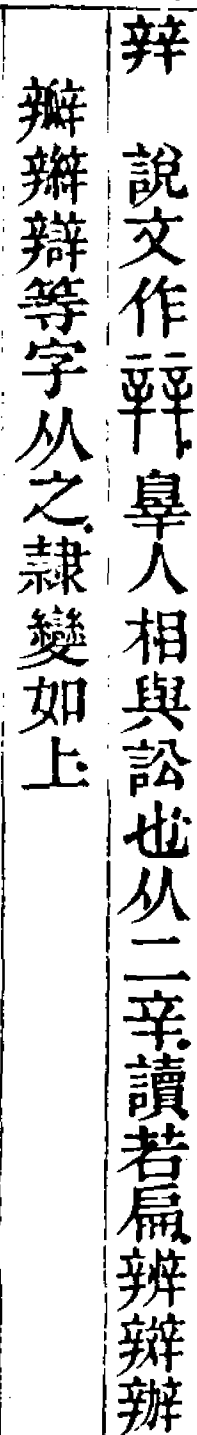 辡　說文作辡.辠人相與訟也从二辛.讀若扁.辨辬辦
瓣辮辯等字从之.隸變如上